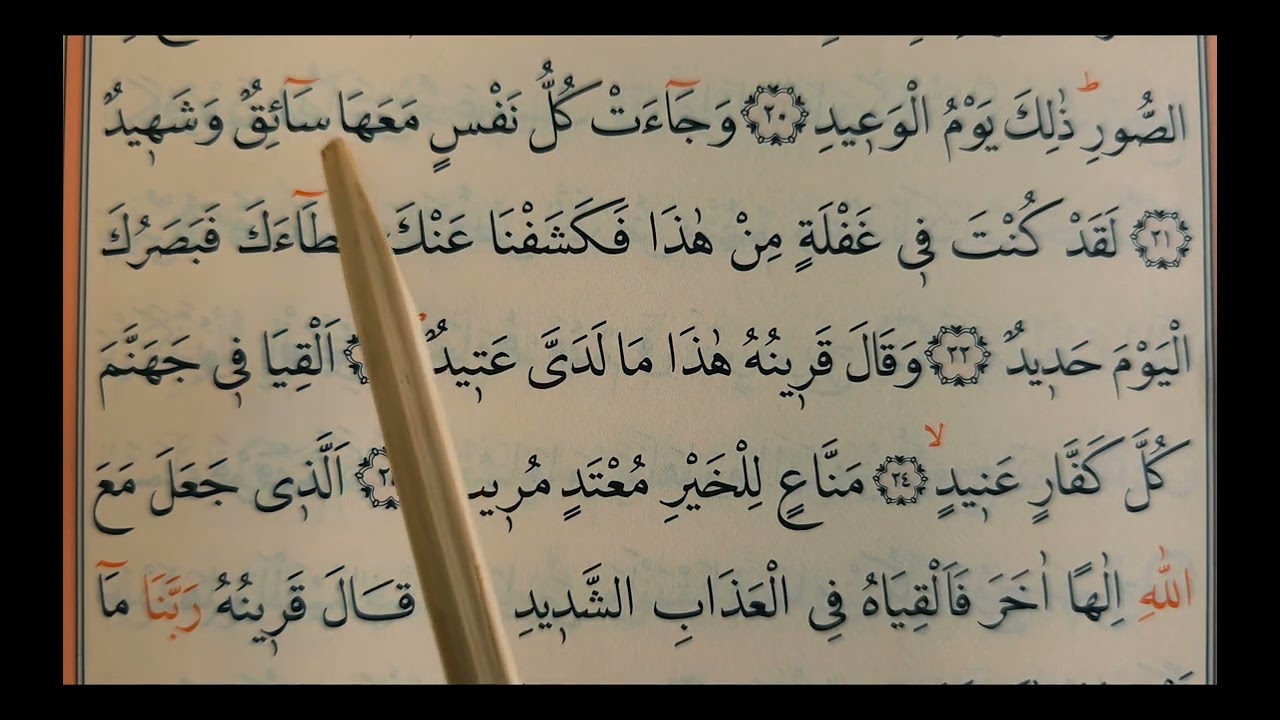 الصُّورِۜ ذٰلِكَ يَوْمُ الْوَعٖيدِ ﴿٢٠﴾ وَجَٓاءَتْ كُلُّ نَفْسٍ مَعَهَا سَٓائِقٌ وَشَهٖيدٌ
﴿٢١﴾ لَقَدْ كُنْتَ فٖي غَفْلَةٍ مِنْ هٰذَا فَكَشَفْنَا عَنْكَ فَبَصَرُكَ
الْيَوْمَ حَدٖيدٌ ﴿٢٢﴾ وَقَالَ قَرٖينُهُ هٰذَا مَا لَدَىَّ عَتٖيدٌ اَلْقِيَا فٖي جَهَنَّمَ
كُلَّ كَفَّارٍ عَنٖيدٍۙ ﴿٢٤﴾ مَنَّاعٍ لِلْخَيْرِ مُعْتَدٍ اَلَّذٖى جَعَلَ مَعَ
اللّٰهِ اِلٰهًا اٰخَرَ فَاَلْقِيَاهُ فِي الْعَذَابِ الشَّدٖيدِ قَالَ قَرٖينُهُ رَبَّنَا مَٓا